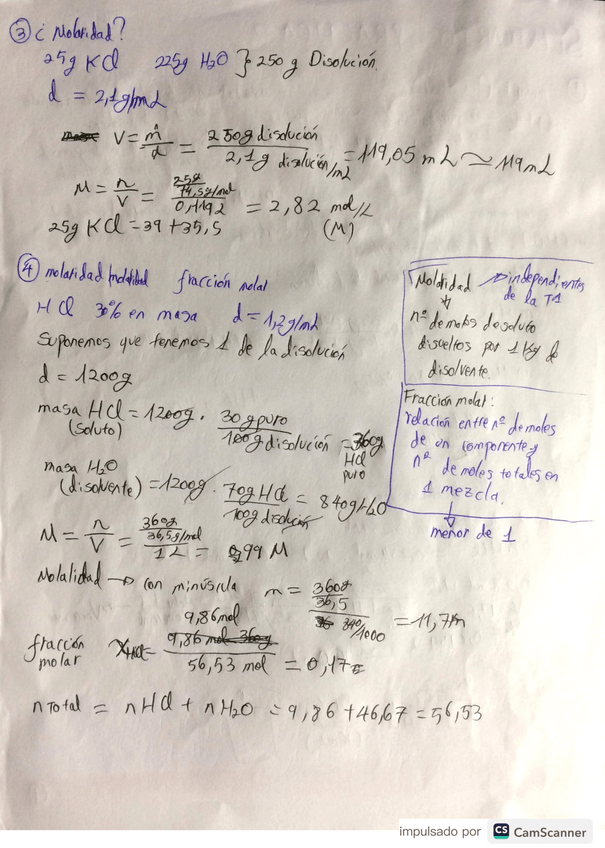 ③ ¿Molaridad?
25g KCl 225g H₂O } 250 g Disolución.
d = 2,1g/mL
V = m/d = 250g disolución / 2,1g disolución/mL = 119,05 mL ≃ 119mL
M = n/V = 25g / 74,5g/mol / 0,119L = 2,82 mol/L
(M)
25g KCl = 39 + 35,5
④ molaridad molalidad fracción molar
HCl 30% en masa d = 1,2g/mL
Suponemos que tenemos 1 de la disolución
d = 1200g
masa HCl = 1200g · 30g puro / 100g disolución = 360g HCl puro
(soluto)
masa H₂O
(disolvente) = 1200g · 70g HCl / 100g disolución = 840g H₂O
M = n/V = 360g / 36,5g/mol / 1L = 9,99 M
Molalidad → con minúscula m = 360g / 36,5 / 840/1000 = 11,7m
fracción
molar XHCl = 9,86mol / 56,53 mol = 0,17
n Total = nHCl + nH₂O = 9,86 + 46,67 = 56,53
Molalidad → independientes
de la Tª
nº de moles de soluto
disueltos por 1 kg de
disolvente.
Fracción molar:
relación entre nº de moles
de un componente y
nº de moles totales en
1 mezcla.
↓
menor de 1
impulsado por CS CamScanner